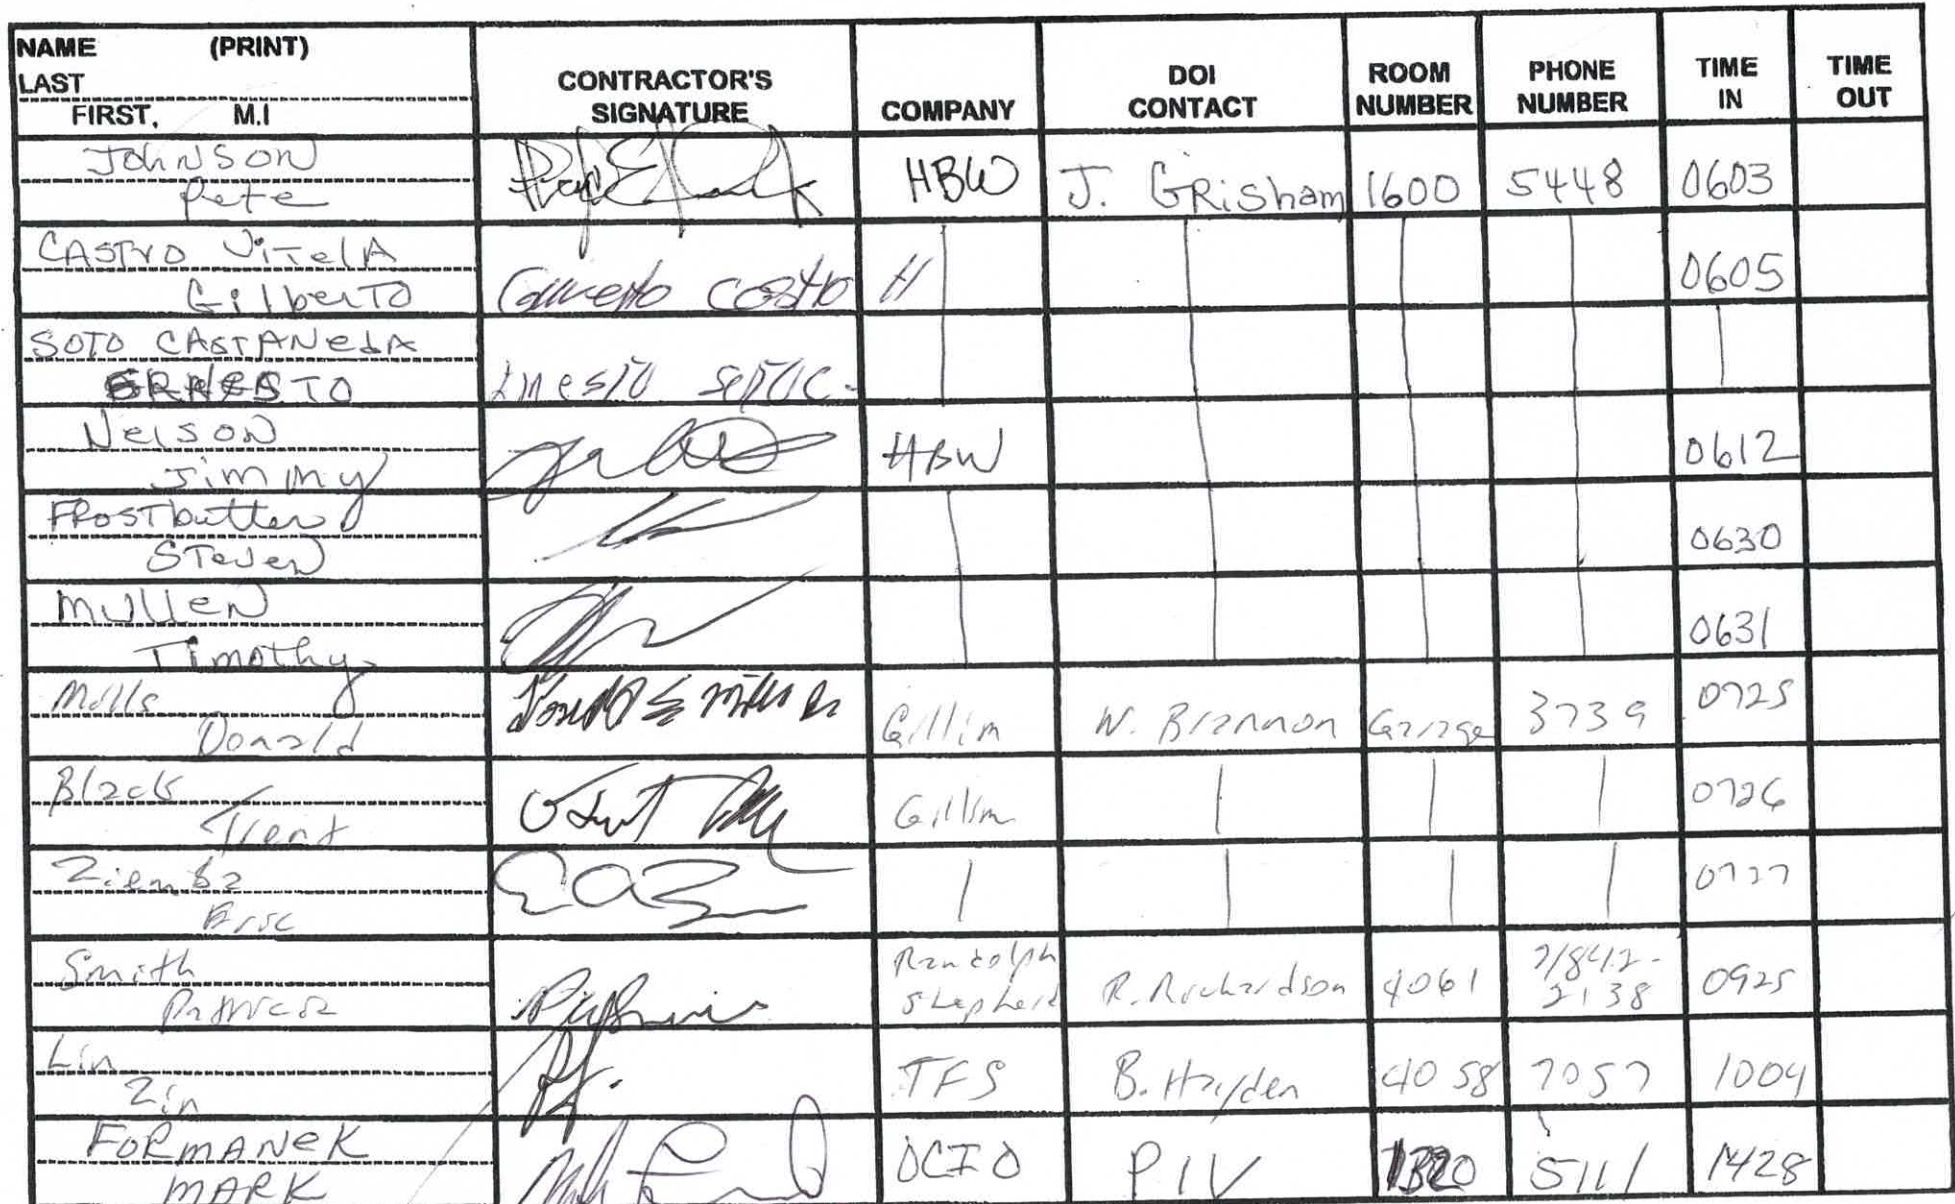 NAME (PRINT)
LAST
FIRST, M.I
CONTRACTOR'S
SIGNATURE
COMPANY
DOI
CONTACT
ROOM
NUMBER
PHONE
NUMBER
TIME
IN
TIME
OUT
Johnson
Pete
HBW J. GRisham 1600 5448 0603
CASTRO ViTelA
GilberTO
H 0605
SOTO CASTANedA
ERNESTO
Nelson
Jimmy
HBW 0612
FROSTbutter
STeven
0630
Mullen
Timothy
0631
Mills
Donald
Gillim W. Brannon Garage 3739 0725
Black
Trent
Gillim 0726
Ziemba
Eric
0727
Smith
Randolph
Shepherd R. Richardson 4061 0925
2138
Lin
Zin
TFS B. Hayden 4058 7057 1004
FORMANEK
MARK
OCIO PIV 5111 1428